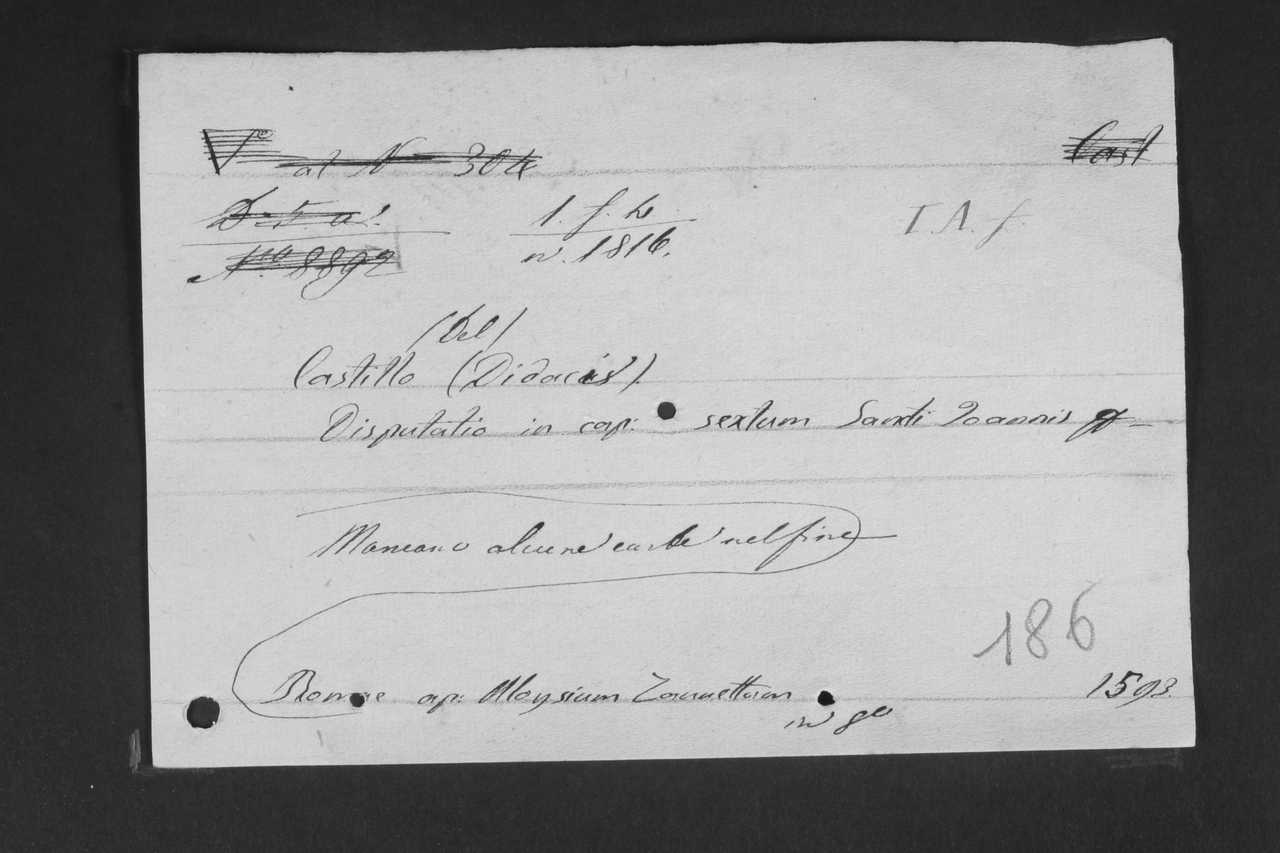 V.e al N 304
Cast
1. f. h.
I. A. f.
N.o 8892
n. 1816.
(Del)
Castillo (Didacus).
Disputatio in cap: sextum Sancti Joannis
Mancano alcune carte nel fine
186
Romae ap: Aloysium Zannettum
1593.
in 8o